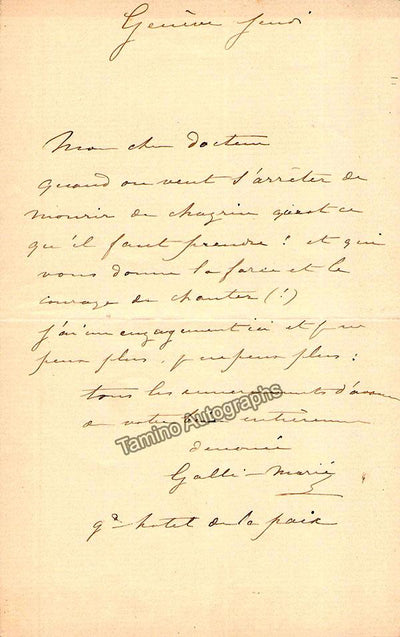 Genève jeudi
Mon cher docteur
quand on veut s'arrêter de
mourir de chagrin qu'est ce
qu'il faut prendre! et qui
vous donne la force et le
courage de chanter (!)
j'ai un engagement ici et je ne
peux plus. je ne peux plus:
tous les remerciements d'avance
de votre bien entièrement
dévouée
Galli-Marié
gd hotel de la paix
Tamino Autographs